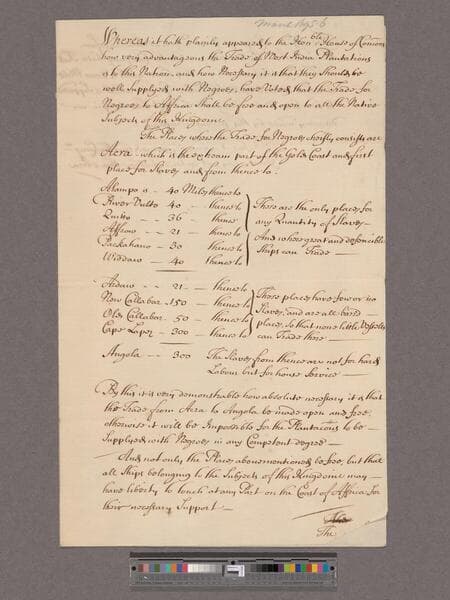 Whereas it hath plainly appeared to the Hon.ble House of Comons
how very advantageous the Trade of West India Plantations
is to this Nation, and how Necessary it is that they should be
well Supplyed with Negroes, have Voted that the Trade for
Negroes to Affrica shall be free and open to all the Native
Subjects of this Kingdome.
The Places where the Trade for Negroes chiefly consists are
Acra which is the extream part of the Gold Coast and first
place for Slaves and from thence to.
Alampo is - 40 Miles thence to
River Vulto 40 - thence to
Quitto - - 36 - thence
Affrow - - 21 - thence to
Packahano - 30 thence to
Widdaw - 40 thence to
These are the only places for
any Quantity of Slaves
And where great and defencible
Ships can Trade
Ardaw - - 21 - thence to
New Callabar - 150 - thence to
Old Callabar - 50 - thence to
Cape Lopez - 300 - thence to
These places have few or no
Slaves, and are all barrd
places, so that none little Vessells
can Trade there
Angola - - 300 The Slaves from thence are not for hard
Labour but for house Service
By this it is very demonstrable how absolute necessary it is that
the Trade from Acra to Angola be made open and free,
otherwise it will be Impossible for the Plantations to be
Supplyed with Negroes in any Competent degree
And not only the Places abovementioned be free, but that
all Ships belonging to the Subjects of this Kingdome may
have liberty to touch at any Part on the Coast of Affrica for
their necessary Support
The